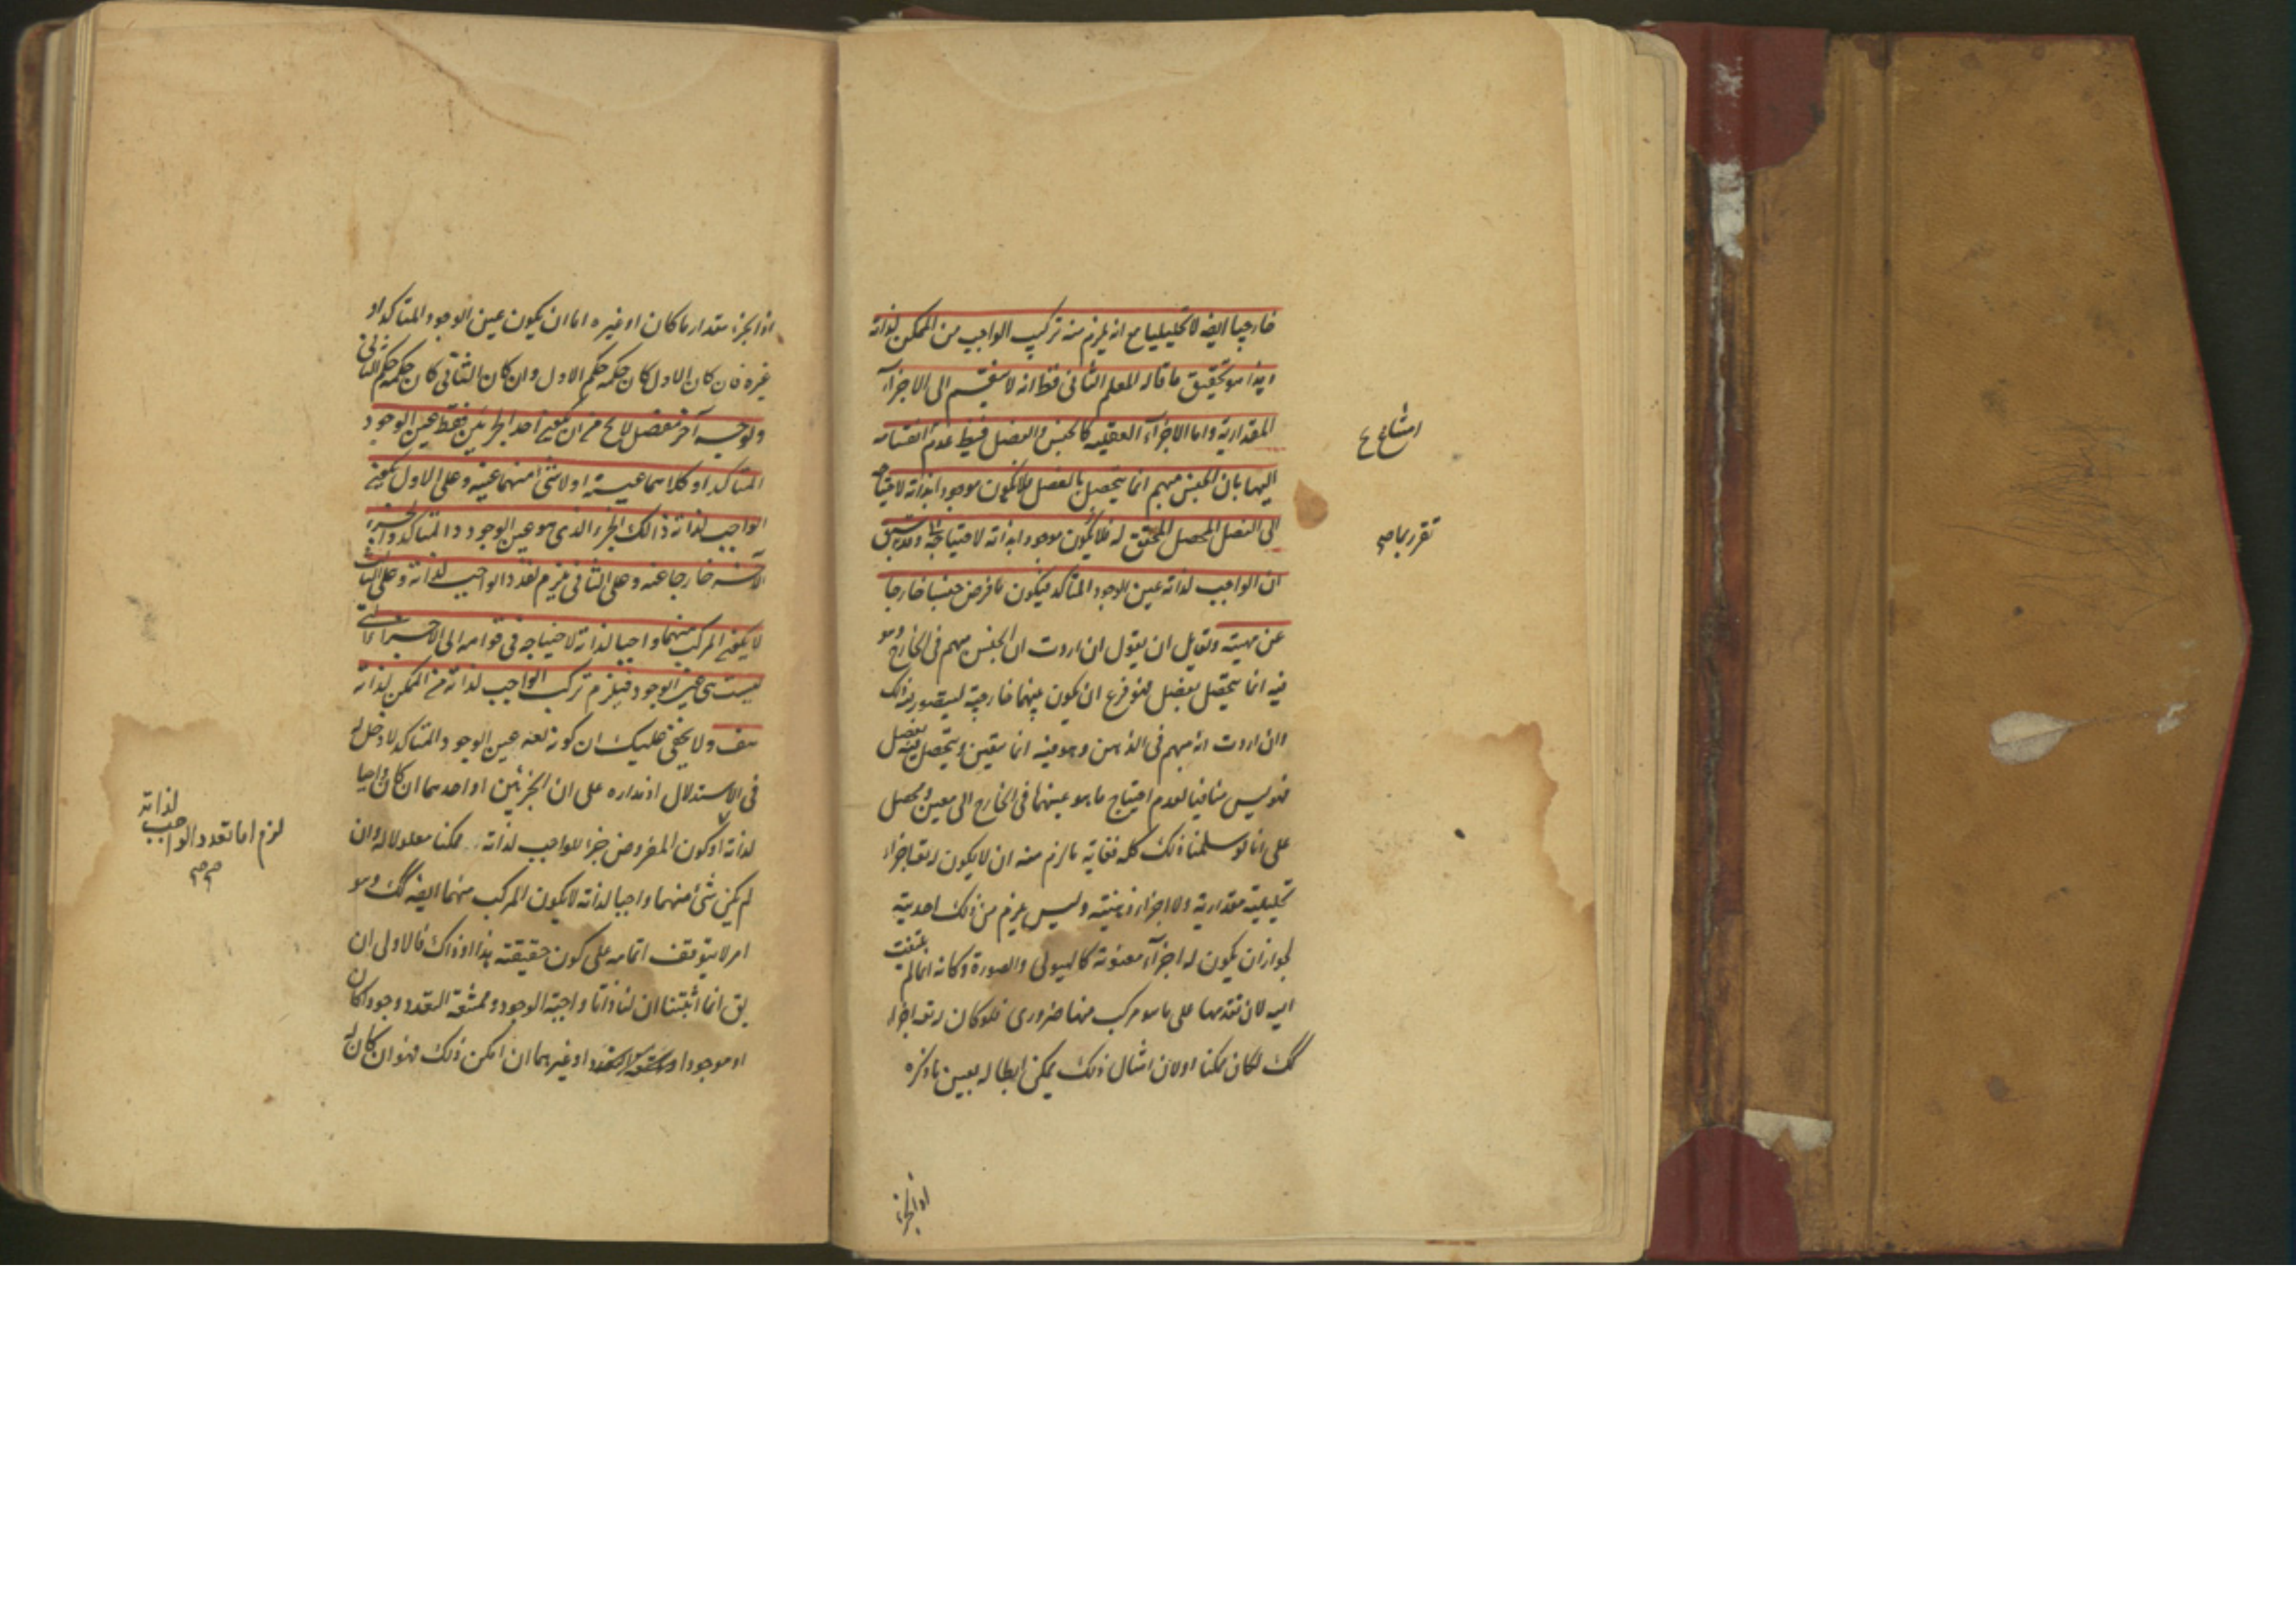 خارجيا ايضه لا تحليليا مع انه يلزم منه تركيب الواجب من الممكن لذاته
وهذا هو تحقيق ما قاله المعلم الثانى فظ انه لا ينقسم الى الاجزاء
المقدارية واما الاجزاء العقليه كالجنس والفصل فيظ عدم انقسامه
اليها بان الجنس مبهم انما يتحصل بالفصل فلا يكون موجودا بذاته لاحتياجه
الى الفصل المحصل المحقق له فلا يكون موجودا بذاته لاحتياجه وقد سبق
ان الواجب لذاته عين الوجود المتاكد فيكون ما فرض جنسا خارجا
عن مهيته ولقايل ان يقول ان اردت ان الجنس مبهم فى الخارج وهو
فيه انما يتحصل بفصل فهو فرع ان يكون بينهما خارجية ليتصور ذلك
وان اردت انه مبهم فى الذهن وهو فيه انما يتعين ويتحصل فيه بفصل
فهو ليس منافيا لعدم احتياج ما هو عينهما فى الخارج الى معين ومحصل
على انا لو سلمنا ذلك كله فغاية ما لزم منه ان لا يكون له تع اجزاء
تحليلية مقدارية ولا اجزاء ذهنية وليس يلزم من ذلك احديته
لجواز ان يكون له اجزاء معنوية كالهيولى والصورة وكانه انما لم يلتفت
اليه لان تقدمها على ما هو مركب منها ضرورى فلو كان له تع اجزاء
كك لكان ممكنا اولان امثال ذلك يمكن ابطاله بعين ما ذكره
امتناع ع
تقرر بما صح
اذ الجزء
اذ الجزء مقدار ما كان او غيره اما ان يكون عين الوجود المتاكد او
غيره فان كان الاول كان حكمه حكم الاول وان كان الثانى كان حكمه حكم الثانى
ولوجه آخر مفصل لا يخ من ان يكون احد الجزئين فقط عين الوجود
المتاكد او كلاهما عينه او لا شئ منهما عينه وعلى الاول يكون
الواجب لذاته ذالك الجزء الذى هو عين الوجود المتاكد والجزء
الآخر خارجا عنه وعلى الثانى يلزم تعدد الواجب لذاته وعلى الثالث
لا يكون المركب منهما واجبا لذاته لاحتياجه فى قوامه الى الاجزاء التى
ليست هى عين الوجود فيلزم تركب الواجب لذاته من الممكن لذاته
هف ولا يخفى عليك ان كونه تعه عين الوجود المتاكد لا دخل له
فى الاستدلال اذ مداره على ان الجزئين او احدهما ان كان واجبا
لذاته او كون المفروض جزء للواجب لذاته ممكنا معلولا له وان
لم يكن شئ منهما واجبا لذاته لا يكون المركب منهما ايضه كك وهو
امر لا يتوقف اتمامه على كون حقيقته هذا او ذاك فالاولى ان
يق انما اثبتنا ان لنا ذاتا واجبة الوجود وممتنعة التعدد وجودا كان
او موجودا او غيرهما ان امكن ذلك فهو ان كان له
لزم اما تعدد الواجب لذاته
صح صح